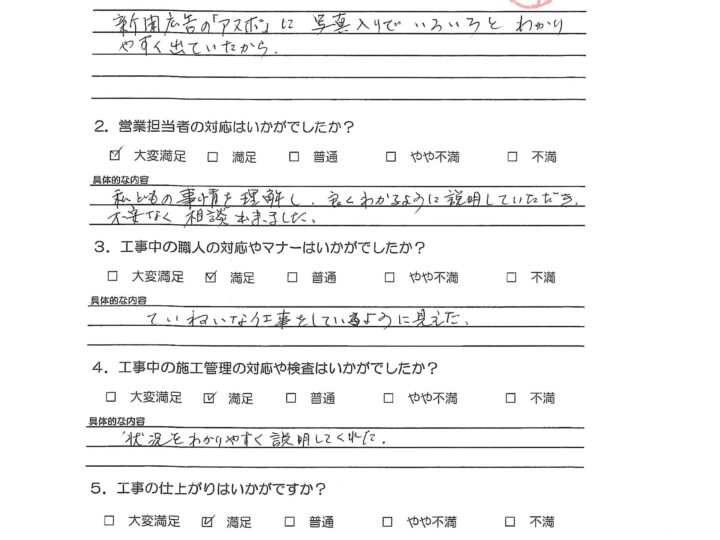 新聞広告の「アスポ」に 写真入りで いろいろと わかり
やすく出ていたから.
2. 営業担当者の対応はいかがでしたか？
☑ 大変満足 □ 満足 □ 普通 □ やや不満 □ 不満
具体的な内容
私どもの事情を理解し、良くわかるように説明していただき、
不安なく相談出来ました。
3. 工事中の職人の対応やマナーはいかがでしたか？
□ 大変満足 ☑ 満足 □ 普通 □ やや不満 □ 不満
具体的な内容
ていねいな仕事をしているように見えた.
4. 工事中の施工管理の対応や検査はいかがでしたか？
□ 大変満足 ☑ 満足 □ 普通 □ やや不満 □ 不満
具体的な内容
状況をわかりやすく説明してくれた.
5. 工事の仕上がりはいかがですか？
□ 大変満足 ☑ 満足 □ 普通 □ やや不満 □ 不満